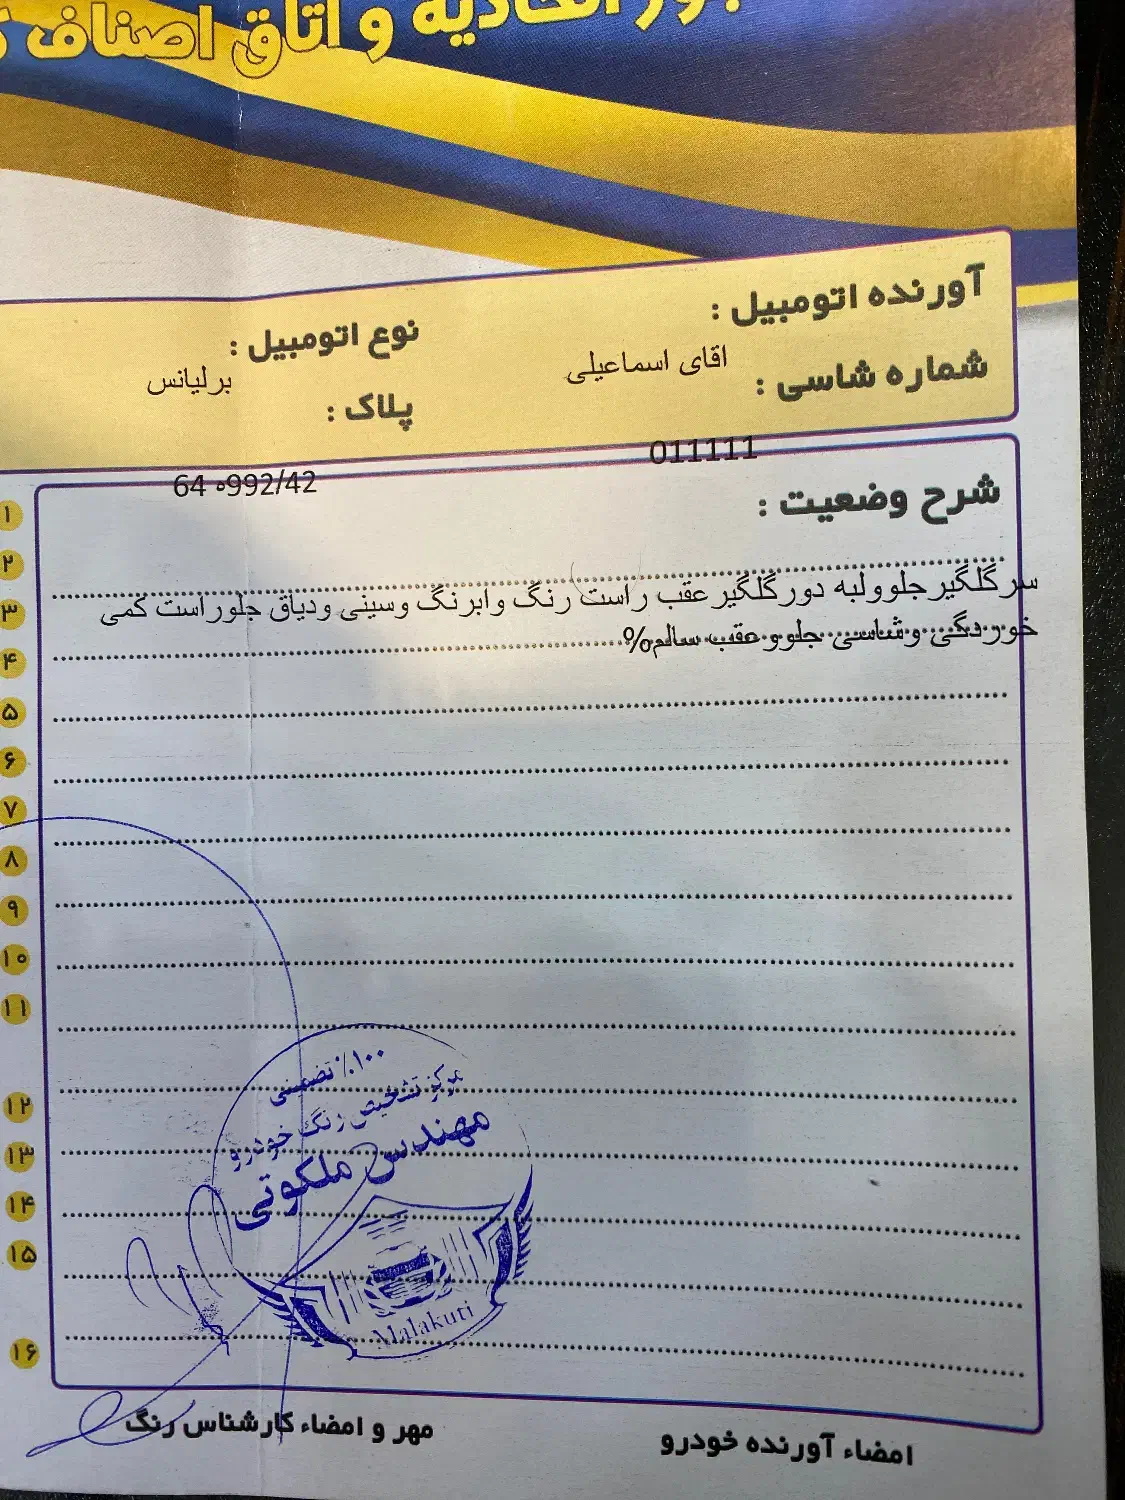 اتحادیه و اتاق اصناف
آورنده اتومبیل :
نوع اتومبیل :
اقای اسماعیلی
برلیانس
شماره شاسی :
پلاک :
011111
64 ه992/42
شرح وضعیت :
سرگلگیر جلوولبه دورگلگیر عقب راست رنگ وابرنگ وسینی ودیاق جلوراست کمی
خوردگی وشاسی جلو و عقب سالم%
۱
۲
۳
۴
۵
۶
۷
۸
۹
۱۰
۱۱
۱۲
۱۳
۱۴
۱۵
۱۶
۱۰۰٪ تضمینی
مرکز تشخیص رنگ خودرو
مهندس ملکوتی
Malakuti
مهر و امضاء کارشناس رنگ
امضاء آورنده خودرو